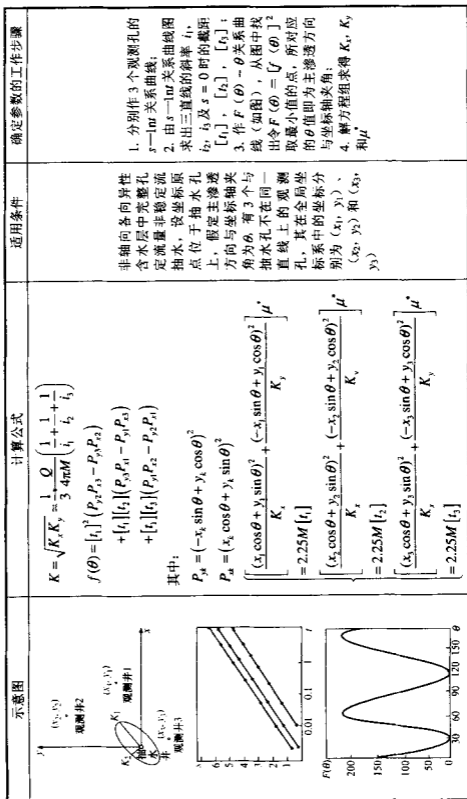 示意图
计算公式
适用条件
确定参数的工作步骤
y
(x₂, y₂)
观测井2
K₂
K₁
(x₁, y₁)
观测井1
抽水井
x
(x₃, y₃)
观测井3
s
6
5
4
3
2
1
0.01
0.1
1
t
F(θ)
200
150
100
50
0
30
60
90
120
150
θ
K = √(KₓKᵧ) ≈ 1/3 Q/4πM (1/i₁ + 1/i₂ + 1/i₃)
f(θ) = [t₁]² (Pᵧ₂Pₓ₃ − Pᵧ₃Pₓ₂)
+ [t₁][t₂](Pᵧ₃Pₓ₁ − Pᵧ₁Pₓ₃)
+ [t₁][t₃](Pᵧ₁Pₓ₂ − Pᵧ₂Pₓ₁)
其中:
Pᵧₖ = (−xₖ sinθ + yₖ cosθ)²
Pₓₖ = (xₖ cosθ + yₖ sinθ)²
[(x₁ cosθ + y₁ sinθ)²/Kₓ + (−x₁ sinθ + y₁ cosθ)²/Kᵧ] μ*
= 2.25M [t₁]
[(x₂ cosθ + y₂ sinθ)²/Kₓ + (−x₂ sinθ + y₂ cosθ)²/Kᵧ] μ*
= 2.25M [t₂]
[(x₃ cosθ + y₃ sinθ)²/Kₓ + (−x₃ sinθ + y₃ cosθ)²/Kᵧ] μ*
= 2.25M [t₃]
非轴向各向异性
含水层中完整孔
定流量非稳定流
抽水,设坐标原
点位于抽水孔
上,假定主渗透
方向与坐标轴夹
角为θ,有3个与
抽水孔不在同一
直线上的观测
孔,其在全局坐
标系中的坐标分
别为(x₁, y₁)、
(x₂, y₂)和(x₃,
y₃)
1. 分别作3个观测孔的
s—lnt关系曲线;
2. 由s—lnt关系曲线图
求出三直线的斜率i₁,
i₂, i₃及s=0时的截距
[t₁], [t₂], [t₃];
3. 作F(θ)−θ关系曲
线(如图),从图中找
出令F(θ)=[f(θ)]²
取最小值的点,所对应
的θ值即为主渗透方向
与坐标轴夹角;
4. 解方程组求得Kₓ, Kᵧ
和μ*